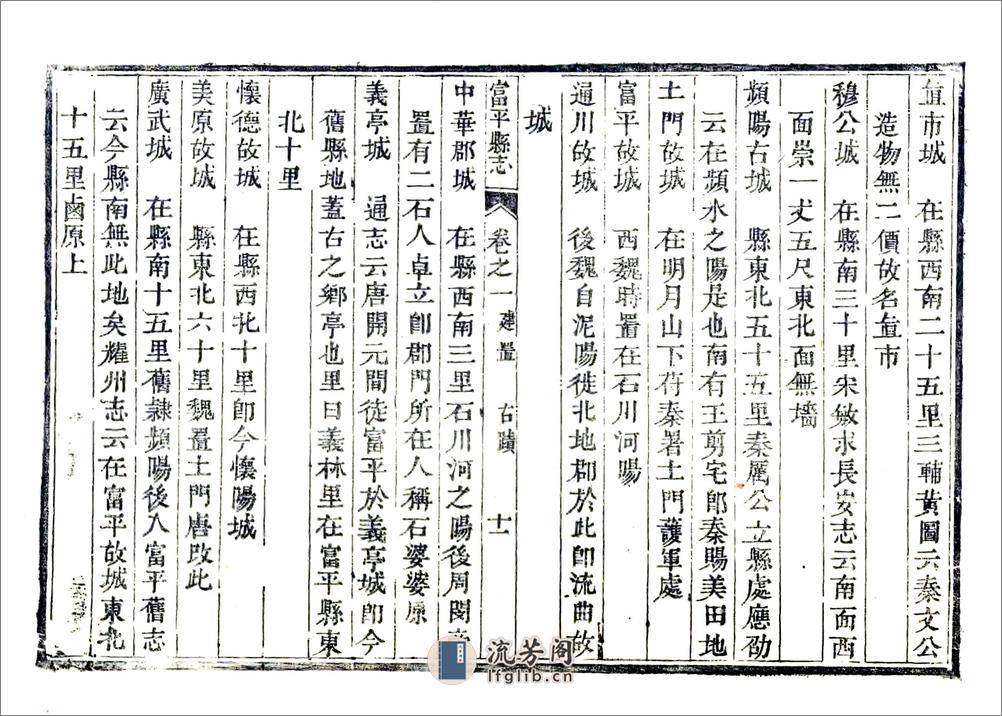 直市城　在縣西南二十五里三輔黃圖云秦文公
造物無二價故名直市
穆公城　在縣南三十里宋敏求長安志云南面西
面崇一丈五尺東北面無墻
頻陽古城　縣東北五十五里秦厲公立縣處應劭
云在頻水之陽是也南有王翦宅卽秦賜美田地
土門故城　在明月山下苻秦署土門護軍處
富平故城　西魏時置在石川河陽
通川故城　後魏自泥陽徙北地郡於此卽流曲故
城
富平縣志　卷之一　建置　古蹟　十一
中華郡城　在縣西南三里石川河之陽後周閔帝
置有二石人卓立卽郡門所在人稱石婆婆原
義亭城　通志云唐開元間徙富平於義亭城卽今
舊縣地蓋古之鄉亭也里曰義林里在富平縣東
北十里
懷德故城　在縣西北十里卽今懷陽城
美原故城　縣東北六十里魏置土門唐改此
廣武城　在縣南十五里舊隸頻陽後入富平舊志
云今縣南無此地矣耀州志云在富平故城東北
十五里鹵原上
流芳阁
lfglib.cn